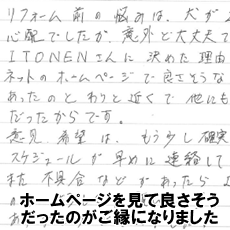 リフォーム前の悩みは、犬が
心配でしたが、意外と大丈夫で
ITONENさんに決めた理由
ネットのホームページで良さそうな
あったのとわりと近くで他にも
だったからです。
意見、希望は、もう少し確実
スケジュールが早めに連絡して
また不具合などがあったら
ホームページを見て良さそう
だったのがご縁になりました